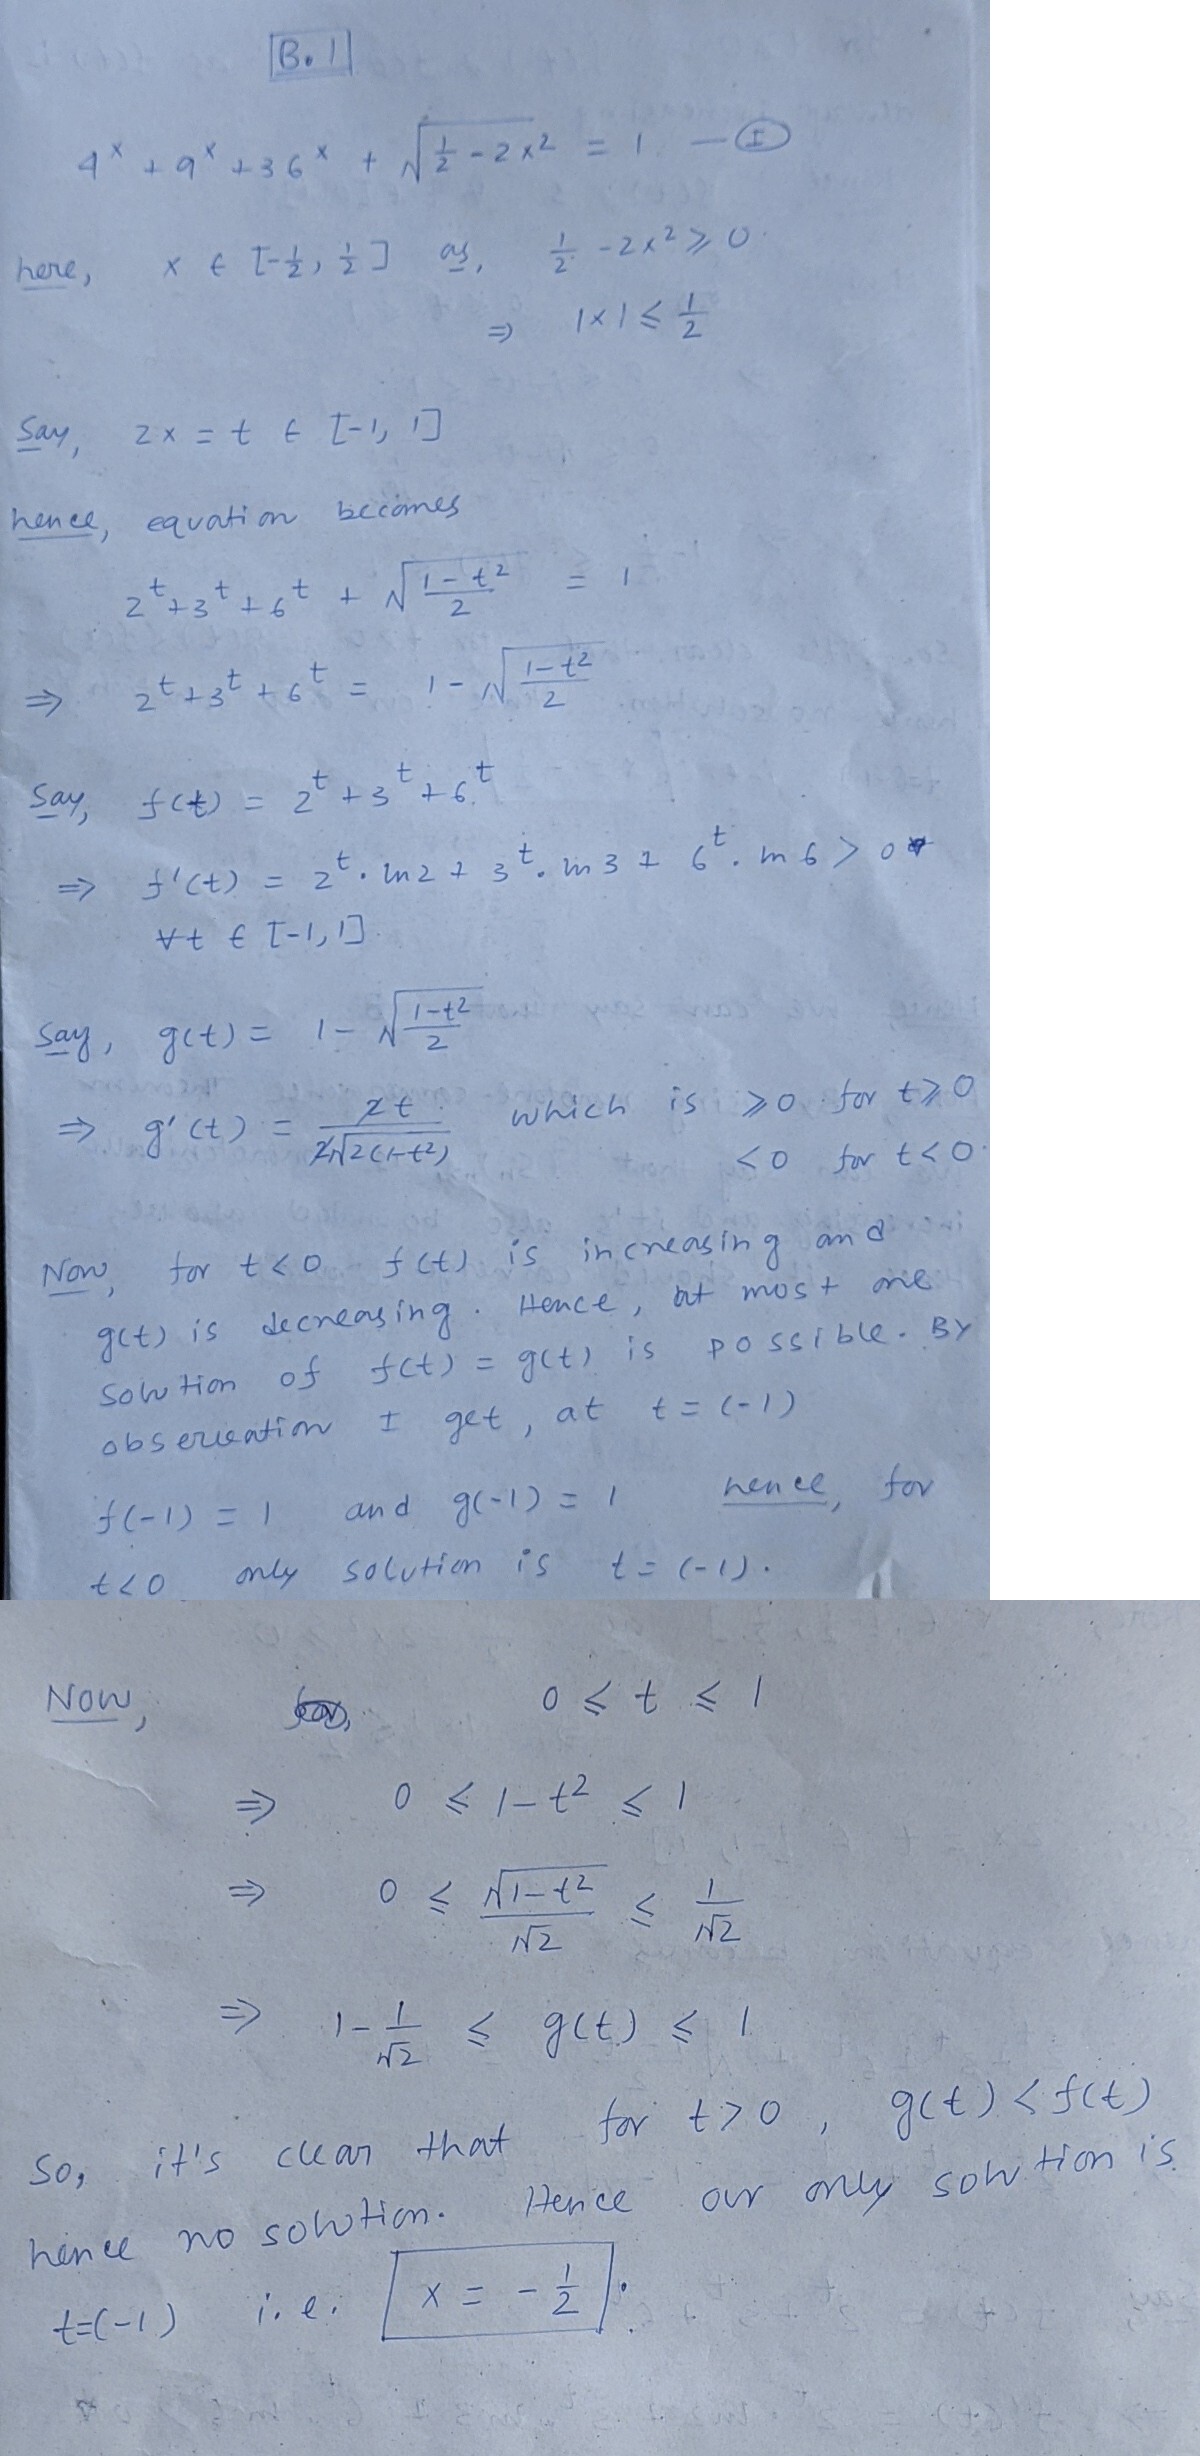 B.1
4^x + 9^x + 36^x + √(1/2 - 2x²) = 1 — (I)
here, x ∈ [-1/2, 1/2] as, 1/2 - 2x² ≥ 0.
⇒ |x| ≤ 1/2
Say, 2x = t ∈ [-1, 1]
hence, equation becomes
2^t + 3^t + 6^t + √((1-t²)/2) = 1
⇒ 2^t + 3^t + 6^t = 1 - √((1-t²)/2)
Say, f(t) = 2^t + 3^t + 6^t
⇒ f'(t) = 2^t. ln2 + 3^t. ln3 + 6^t. ln6 > 0
∀t ∈ [-1, 1].
Say, g(t) = 1 - √((1-t²)/2)
⇒ g'(t) = 2t/(2√(2(1-t²))) which is ≥ 0 for t ≥ 0
< 0 for t < 0.
Now, for t < 0 f(t) is increasing and
g(t) is decreasing. Hence, at most one
solution of f(t) = g(t) is possible. By
observation I get, at t = (-1)
f(-1) = 1 and g(-1) = 1 hence, for
t < 0 only solution is t = (-1).
Now, 0 ≤ t ≤ 1
⇒ 0 ≤ 1 - t² ≤ 1
⇒ 0 ≤ √(1-t²)/√2 ≤ 1/√2
⇒ 1 - 1/√2 ≤ g(t) ≤ 1
So, it's clear that for t > 0, g(t) < f(t)
hence no solution. Hence our only solution is
t=(-1) i.e. x = -1/2.